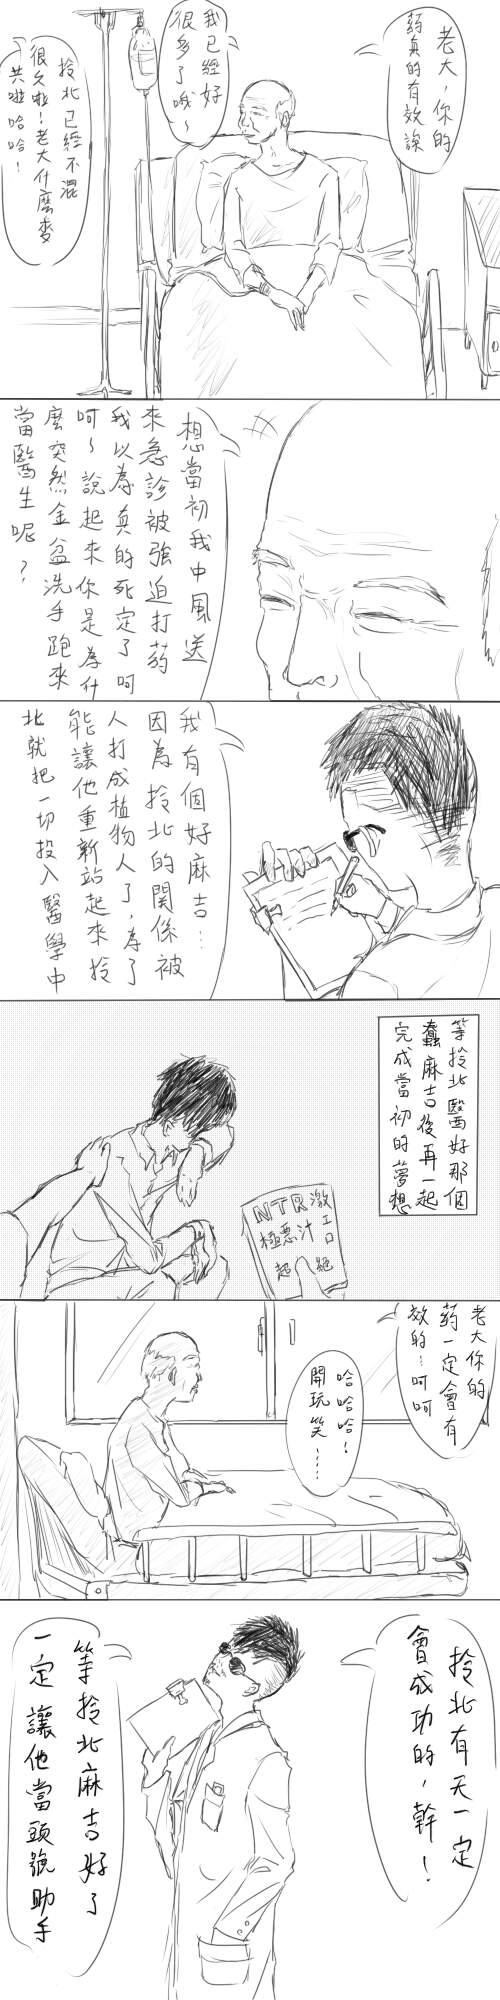 老大，你的
葯真的有效誒
我已經好
很多了哦～
拎北已經不混
很久啦！老大什麼麥
共啦哈哈！
想當初我中風送
來急診被強迫打葯
我以為真的死定了呵
呵～說起來你是為什
麼突然金盆洗手跑來
當醫生呢？
我有個好麻吉…
因為拎北的關係被
人打成植物人了，為了
能讓他重新站起來拎
北就把一切投入醫學中
等拎北醫好那個
蠢麻吉後再一起
完成當初的夢想
NTR激
極惡汁工口
起絕
老大你的
葯一定會有
效的…呵呵
哈哈哈！
開玩笑……
拎北有天一定
會成功的，幹！
等拎北麻吉好了
一定讓他當頭號助手